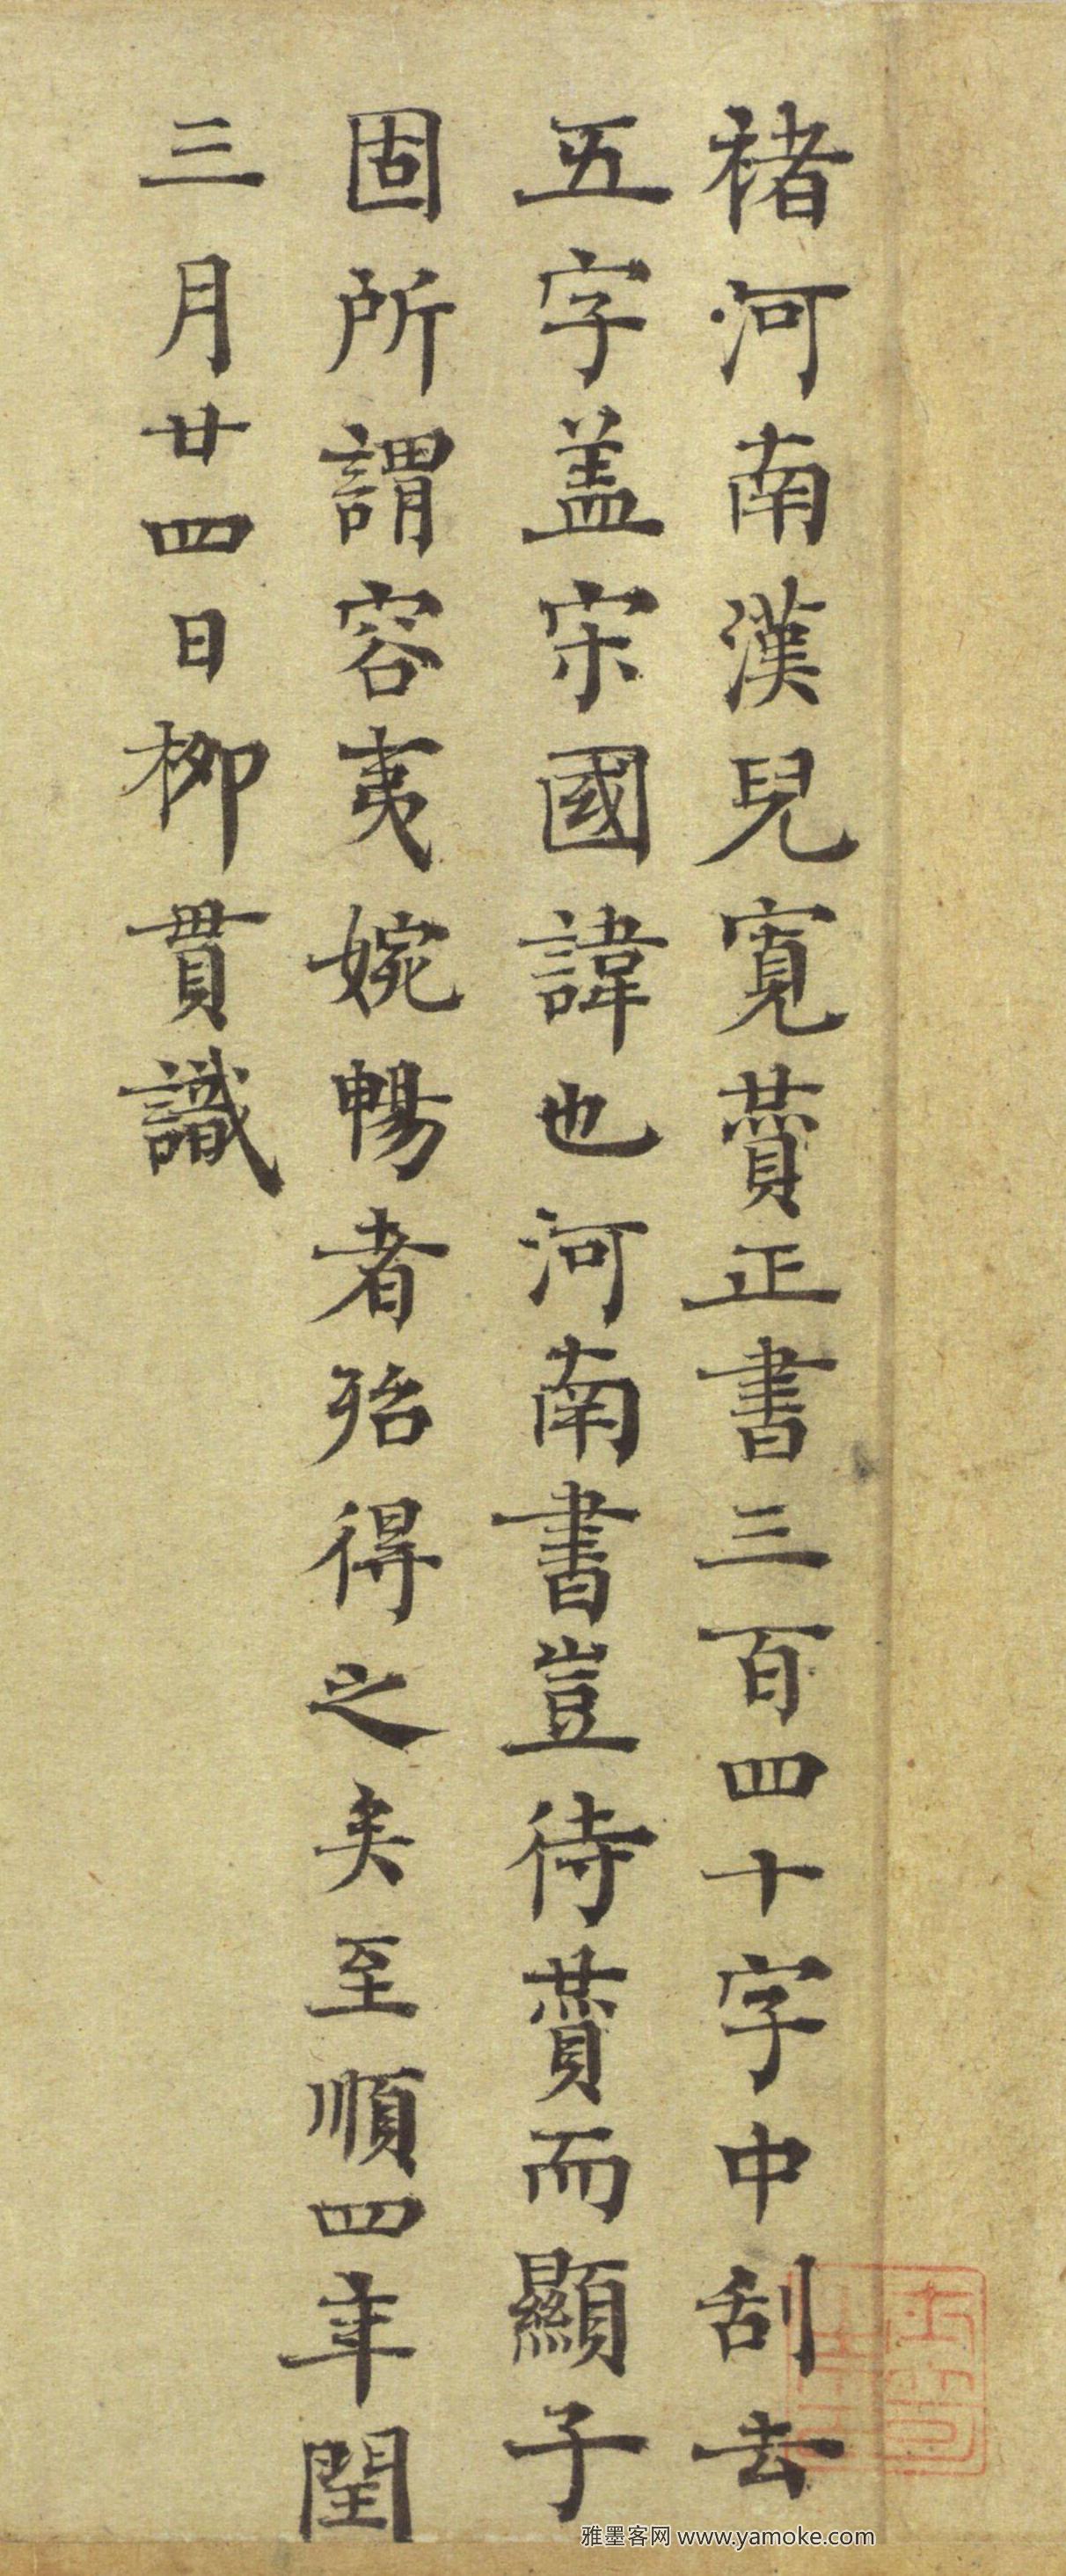 褚河南漢兒寬賛正書三百四十字中刮去
五字盖宋國諱也河南書豈待賛而顯子
固所謂容夷婉暢者殆得之矣至順四年閏
三月廿四日柳貫識
雅墨客网 www.yamoke.com